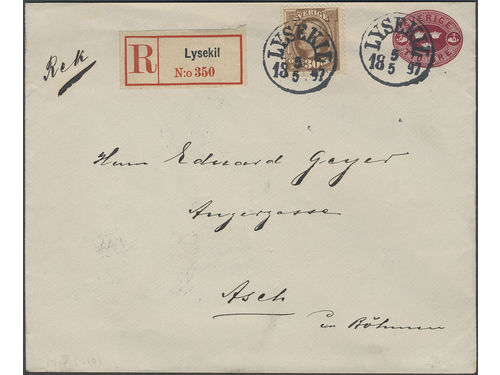 Rek
R
Lysekil
N:o 350
SVERIGE
30
LYSEKIL
5
18 5 97
SVERIGE
TIO ÖRE
LYSEKIL
5
18 5 97
Herrn Eduard Geyer
Angergasse
Asch
in Böhmen